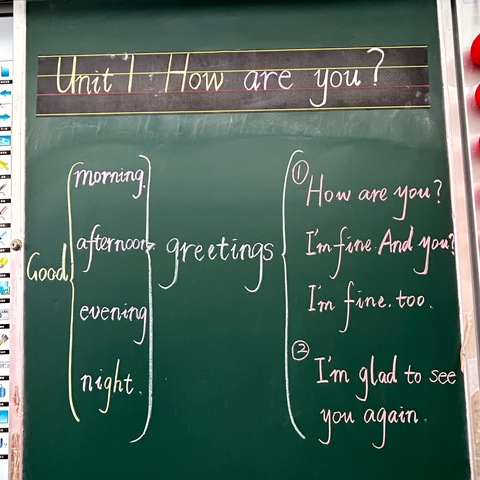 Unit 1 How are you?
Good
morning.
afternoon
evening
night.
greetings
① How are you?
I'm fine. And you?
I'm fine. too.
② I'm glad to see
you again.